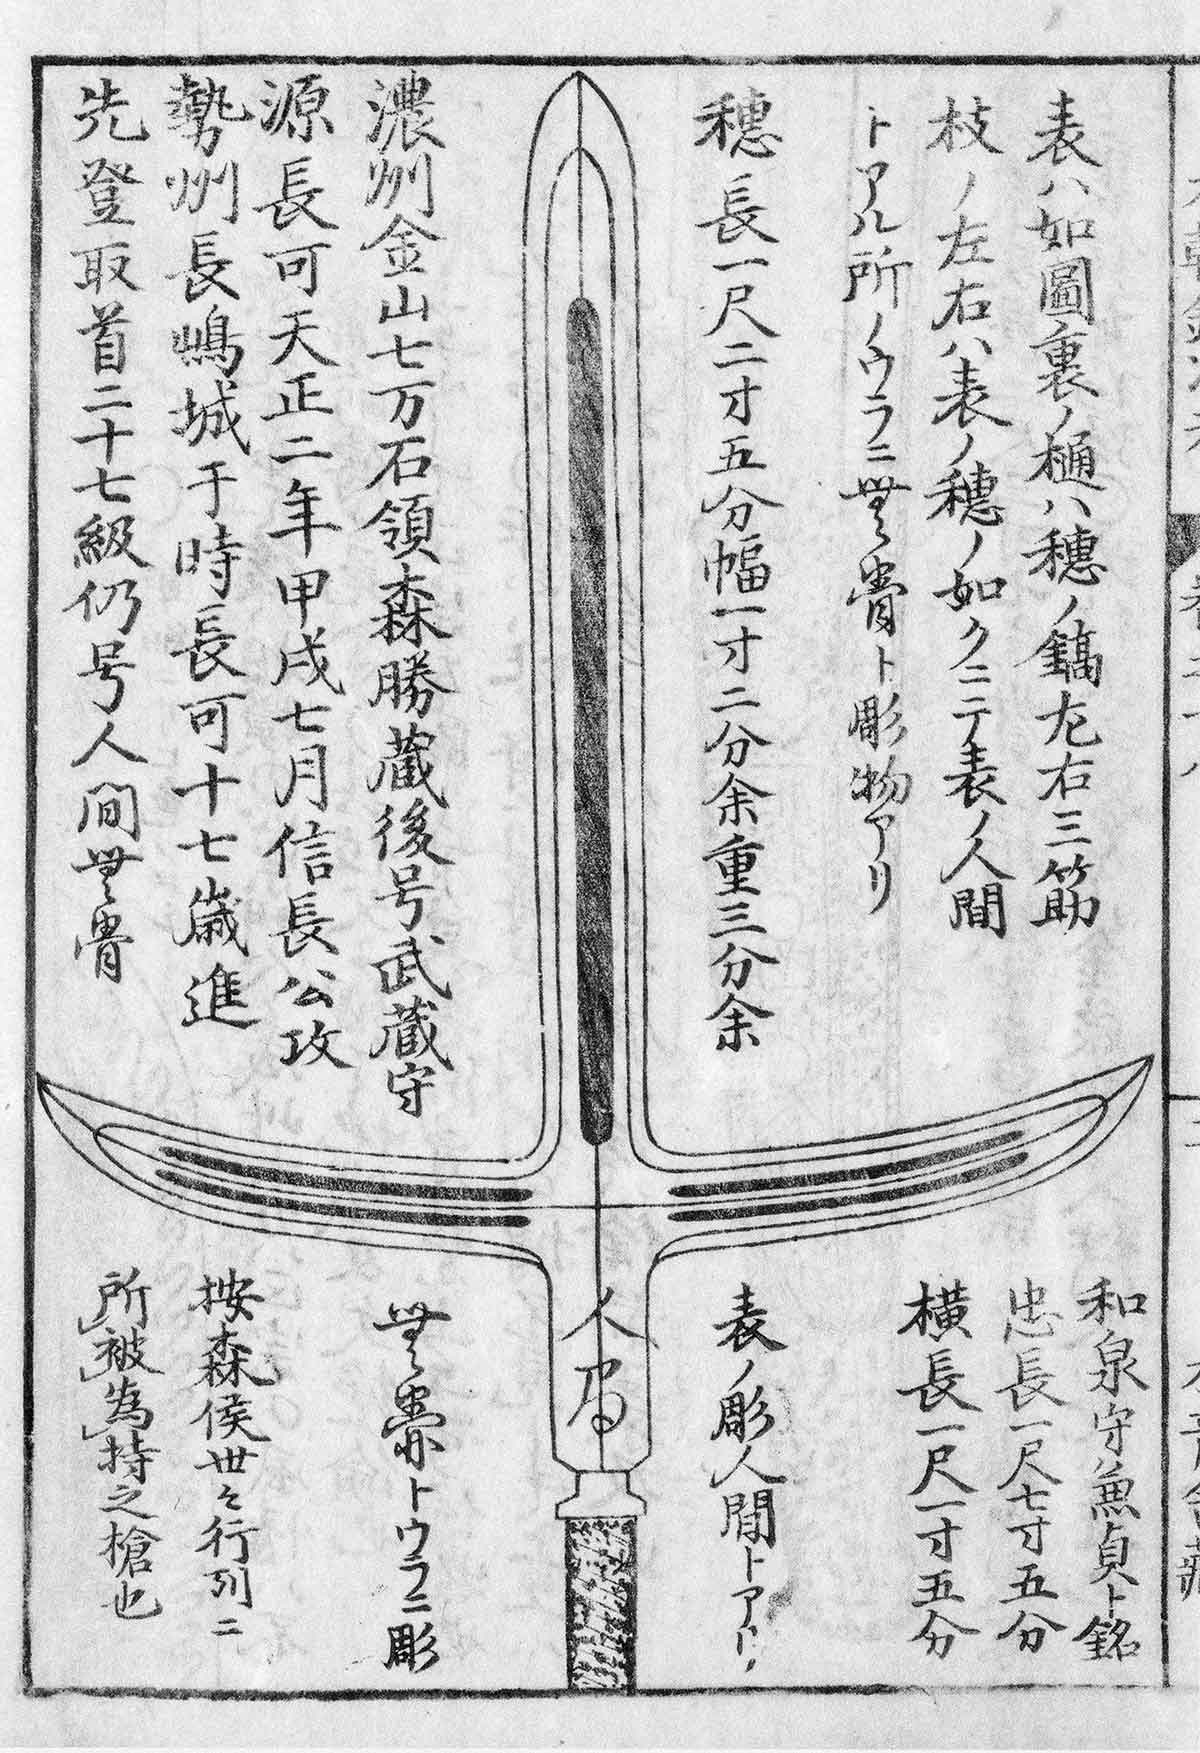 表ハ如圖裏ノ樋ハ穗ノ鎬左右三筋
枝ノ左右ハ表ノ穗ノ如クニテ表ノ人間
トアル所ノウラニ無骨ト彫物アリ
穗長一尺二寸五分幅一寸二分余重三分余
和泉守兼貞ト銘
忠長一尺七寸五分
横長一尺一寸五分
表ノ彫人間トアリ
人間
濃州金山七万石領森勝藏後号武蔵守
源長可天正二年甲戌七月信長公攻
勢州長嶋城于時長可十七歳進
先登取首二十七級仍号人間無骨
無骨トウラニ彫
按森侯世々行列ニ
所被為持之槍也